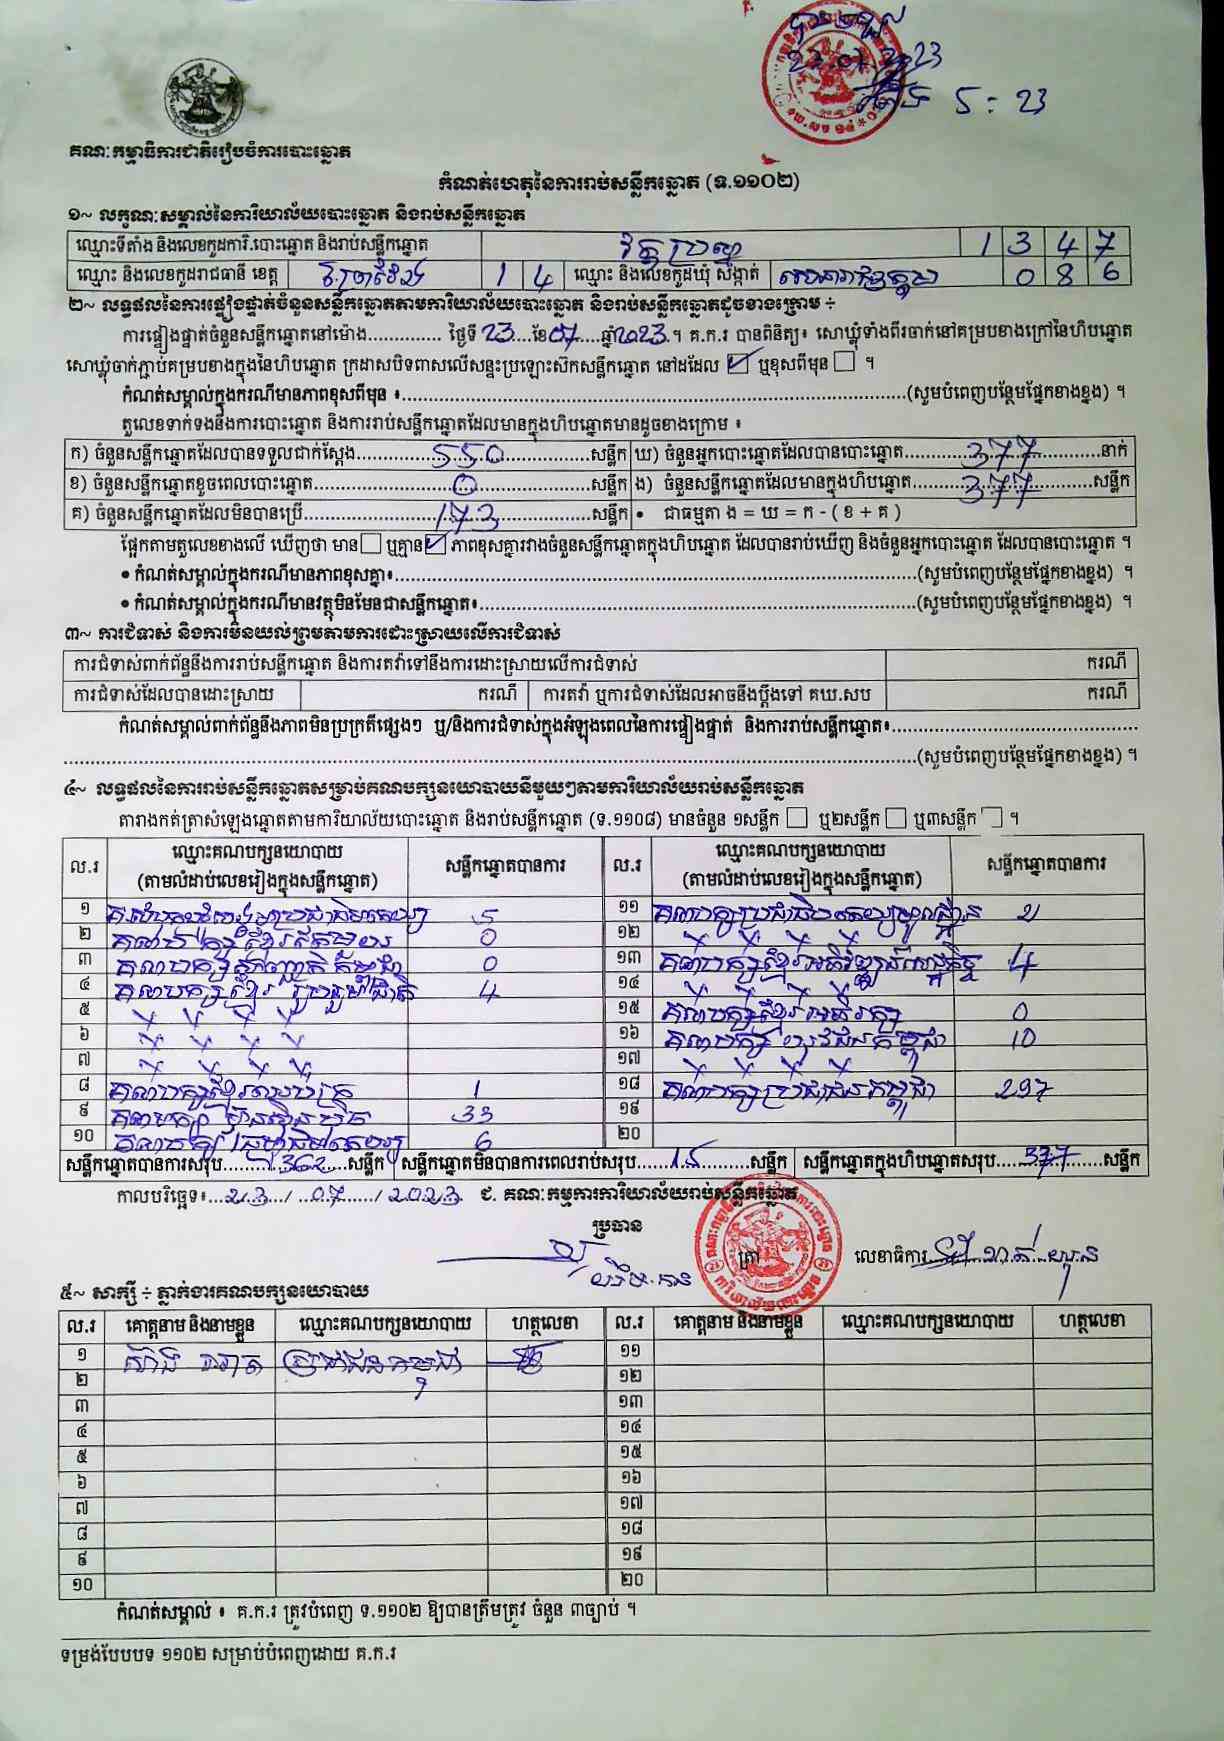 គណៈកម្មាធិការជាតិរៀបចំការបោះឆ្នោត
23.07.2023
5:23
កំណត់ហេតុនៃការរាប់សន្លឹកឆ្នោត (ទ.១១០២)
១~ លក្ខណៈសម្គាល់នៃការិយាល័យបោះឆ្នោត និងរាប់សន្លឹកឆ្នោត
ឈ្មោះទីតាំង និងលេខកូដការិ.បោះឆ្នោត និងរាប់សន្លឹកឆ្នោត 1 3 4 7
ឈ្មោះ និងលេខកូដរាជធានី ខេត្ត ព្រៃវែង 1 4 ឈ្មោះ និងលេខកូដឃុំ សង្កាត់ 0 8 6
២~ លទ្ធផលនៃការផ្ទៀងផ្ទាត់ចំនួនសន្លឹកឆ្នោតតាមការិយាល័យបោះឆ្នោត និងរាប់សន្លឹកឆ្នោតដូចខាងក្រោម ÷
ការផ្ទៀងផ្ទាត់ចំនួនសន្លឹកឆ្នោតនៅម៉ោង.............. ថ្ងៃទី 23 ....ខែ 07 .....ឆ្នាំ 2023 .។ គ.ក.រ បានពិនិត្យ៖ សោឃ្លុំទាំងពីរចាក់នៅគម្របខាងក្រៅនៃហិបឆ្នោត
សោឃ្លុំចាក់ភ្ជាប់គម្របខាងក្នុងនៃហិបឆ្នោត ក្រដាសបិទពាសលើសន្ទះប្រឡោះស៊កសន្លឹកឆ្នោត នៅដដែល ☑ ឬខុសពីមុន ☐ ។
កំណត់សម្គាល់ក្នុងករណីមានភាពខុសពីមុន ៖..............(សូមបំពេញបន្ថែមផ្នែកខាងខ្នង) ។
តួលេខទាក់ទងនឹងការបោះឆ្នោត និងការរាប់សន្លឹកឆ្នោតដែលមានក្នុងហិបឆ្នោតមានដូចខាងក្រោម ៖
ក) ចំនួនសន្លឹកឆ្នោតដែលបានទទួលជាក់ស្តែង..... 550 .....សន្លឹក ឃ) ចំនួនអ្នកបោះឆ្នោតដែលបានបោះឆ្នោត..... 377 .....នាក់
ខ) ចំនួនសន្លឹកឆ្នោតខូចពេលបោះឆ្នោត..... 0 .....សន្លឹក ង) ចំនួនសន្លឹកឆ្នោតដែលមានក្នុងហិបឆ្នោត..... 377 .....សន្លឹក
គ) ចំនួនសន្លឹកឆ្នោតដែលមិនបានប្រើ..... 173 .....សន្លឹក • ជាធម្មតា ង = ឃ = ក - ( ខ + គ )
ផ្អែកតាមតួលេខខាងលើ ឃើញថា មាន ☐ ឬគ្មាន ☑ ភាពខុសគ្នារវាងចំនួនសន្លឹកឆ្នោតក្នុងហិបឆ្នោត ដែលបានរាប់ឃើញ និងចំនួនអ្នកបោះឆ្នោត ដែលបានបោះឆ្នោត ។
• កំណត់សម្គាល់ក្នុងករណីមានភាពខុសគ្នា៖..............(សូមបំពេញបន្ថែមផ្នែកខាងខ្នង) ។
• កំណត់សម្គាល់ក្នុងករណីមានវត្ថុមិនមែនជាសន្លឹកឆ្នោត៖..............(សូមបំពេញបន្ថែមផ្នែកខាងខ្នង) ។
៣~ ការជំទាស់ និងការមិនយល់ព្រមតាមការដោះស្រាយលើការជំទាស់
ការជំទាស់ពាក់ព័ន្ធនឹងការរាប់សន្លឹកឆ្នោត និងការតវ៉ាទៅនឹងការដោះស្រាយលើការជំទាស់ ករណី
ការជំទាស់ដែលបានដោះស្រាយ ករណី ការតវ៉ា ឬការជំទាស់ដែលអាចនឹងប្តឹងទៅ គឃ.សប ករណី
កំណត់សម្គាល់ពាក់ព័ន្ធនឹងភាពមិនប្រក្រតីផ្សេងៗ ឬ/និងការជំទាស់ក្នុងអំឡុងពេលនៃការផ្ទៀងផ្ទាត់ និងការរាប់សន្លឹកឆ្នោត៖..............
..............(សូមបំពេញបន្ថែមផ្នែកខាងខ្នង) ។
៤~ លទ្ធផលនៃការរាប់សន្លឹកឆ្នោតសម្រាប់គណបក្សនយោបាយនីមួយៗតាមការិយាល័យរាប់សន្លឹកឆ្នោត
តារាងកត់ត្រាសំឡេងឆ្នោតតាមការិយាល័យបោះឆ្នោត និងរាប់សន្លឹកឆ្នោត (ទ.១១០៨) មានចំនួន ១សន្លឹក ☐ ឬ២សន្លឹក ☐ ឬ៣សន្លឹក ☐ ។
ល.រ ឈ្មោះគណបក្សនយោបាយ (តាមលំដាប់លេខរៀងក្នុងសន្លឹកឆ្នោត) សន្លឹកឆ្នោតបានការ ល.រ ឈ្មោះគណបក្សនយោបាយ (តាមលំដាប់លេខរៀងក្នុងសន្លឹកឆ្នោត) សន្លឹកឆ្នោតបានការ
១ 5 ១១ គណបក្សប្រជាធិបតេយ្យមូលដ្ឋាន 2
២ 0 ១២ x x x x
៣ 0 ១៣ គណបក្សខ្មែរអភិវឌ្ឍន៍សេដ្ឋកិច្ច 4
៤ គណបក្សខ្មែររួបរួមជាតិ 4 ១៤ x x x x
៥ x x x x ១៥ គណបក្សខ្មែរអភិរក្ស 0
៦ x x x x ១៦ គណបក្ស 10
៧ x x x x ១៧ x x x x
៨ 1 ១៨ គណបក្សប្រជាជនកម្ពុជា 297
៩ គណបក្ស 33 ១៩
១០ គណបក្ស 6 ២០
សន្លឹកឆ្នោតបានការសរុប..... 362 .....សន្លឹក សន្លឹកឆ្នោតមិនបានការពេលរាប់សរុប..... 15 .....សន្លឹក សន្លឹកឆ្នោតក្នុងហិបឆ្នោតសរុប..... 377 .....សន្លឹក
កាលបរិច្ឆេទ៖ 23 / 07 / 2023 ជ. គណៈកម្មការការិយាល័យរាប់សន្លឹកឆ្នោត
ប្រធាន
ត្រា លេខាធិការ
៥~ សាក្សី ÷ ភ្នាក់ងារគណបក្សនយោបាយ
ល.រ គោត្តនាម និងនាមខ្លួន ឈ្មោះគណបក្សនយោបាយ ហត្ថលេខា ល.រ គោត្តនាម និងនាមខ្លួន ឈ្មោះគណបក្សនយោបាយ ហត្ថលេខា
១ ប្រជាជនកម្ពុជា ១១
២ ១២
៣ ១៣
៤ ១៤
៥ ១៥
៦ ១៦
៧ ១៧
៨ ១៨
៩ ១៩
១០ ២០
កំណត់សម្គាល់ ៖ គ.ក.រ ត្រូវបំពេញ ទ.១១០២ ឱ្យបានត្រឹមត្រូវ ចំនួន ៣ច្បាប់ ។
ទម្រង់បែបបទ ១១០២ សម្រាប់បំពេញដោយ គ.ក.រ